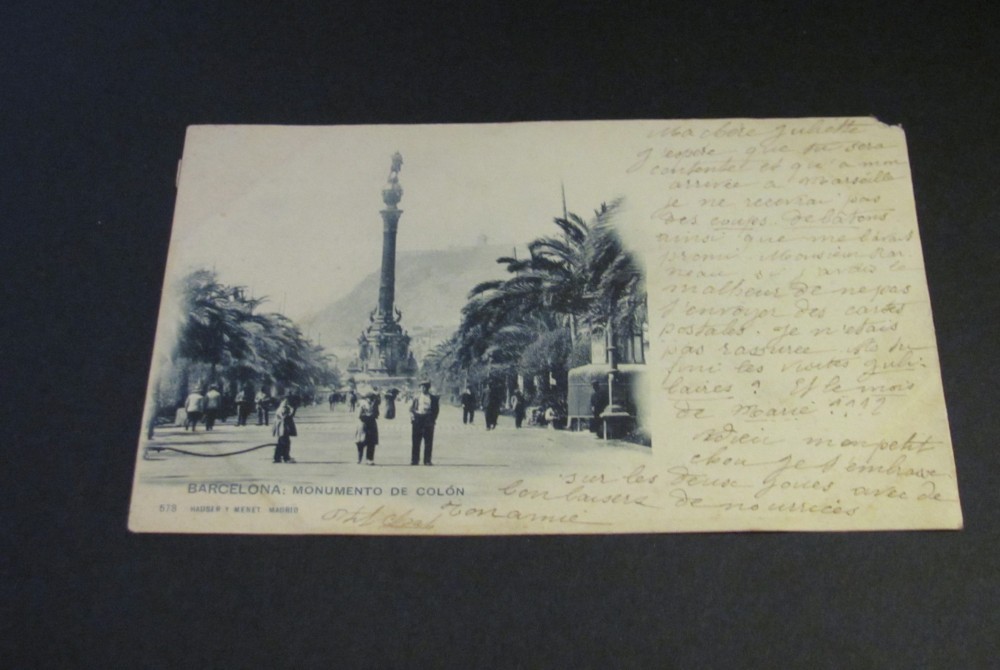 Ma chère Juliette
J'espère que tu sera
contente et qu'a mon
arrivée a Marseille
je ne recevrai pas
des coups de bâtons
ainsi que me l'avais
promi Monsieur
si j'avais le
malheur de ne pas
t'envoyer des cartes
postales. Je n'étais
pas rassurée
les visites
? Et le mois
de Marie !!!?
Adieu mon petit
chou je t'embrasse
sur les deux joues avec de
bon baisers de nourrices
Ton amie
BARCELONA: MONUMENTO DE COLÓN
578 HAUSER Y MENET. MADRID